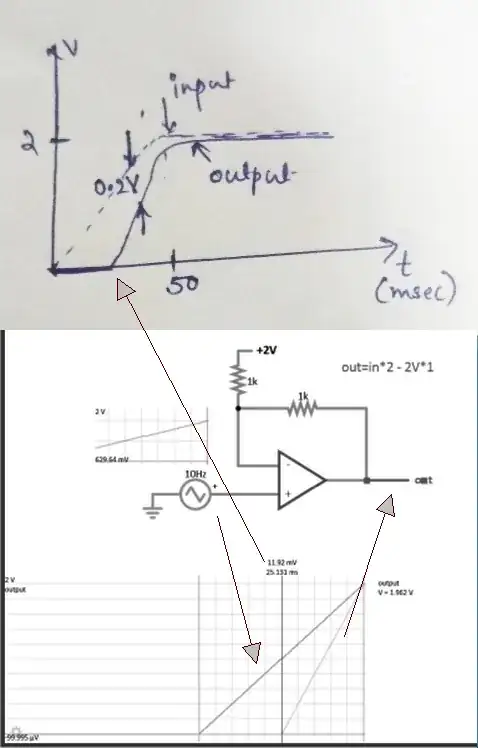 V
input
2
0.2V
output
50
t
(msec)
+2V
out=in*2 - 2V*1
1k
1k
2 V
-
629.64 mV
10Hz
+
+
out
11.92 mV
25.131 ms
2 V
output
output
V = 1.962 V
-99.995 µV